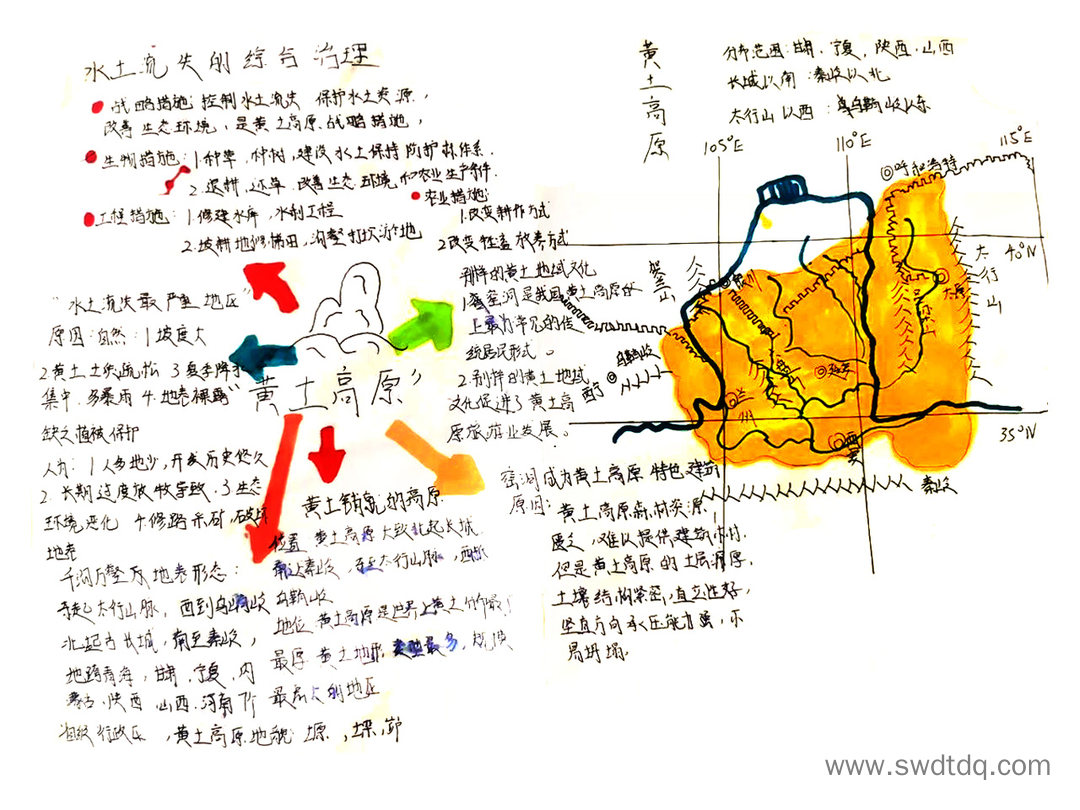 水土流失的综合治理
战略措施:控制水土流失 保护水土资源,
改善生态环境,是黄土高原战略措施,
生物措施:1.种草,种树,建设水土保持防护林体系.
2.退耕,还草.改善生态环境,和农业生产条件.
工程措施:1.修建水库,水利工程
2.坡耕地修梯田,沟壑打坝淤地
农业措施:
1.改变耕作方式
2改变牲畜放养方式
"水土流失最严重地区"
原因:自然:1坡度大
2黄土土质疏松 3夏季降水
集中,多暴雨 4.地表裸露
缺乏植被保护
人为:1人多地少,开发历史悠久
2 长期过度放牧导致.3生态
环境恶化 4修路采矿,破坏
地表
"黄土高原"
别样的黄土地域文化
1.窑洞是我国黄土高原
上最为常见的传
统居民形式。
2.别样的黄土地域
文化促进了黄土高
原旅游业发展。
千沟万壑地表形态:
太行山脉,西到乌鞘岭
北起长城,南至秦岭,
地跨青海,甘肃,宁夏,内
蒙古,陕西,山西,河南7个
省级行政区,黄土高原地貌:塬,墚,峁
黄土铺就的高原
位置 黄土高原大致北起长城
南达秦岭,东至太行山脉,西抵
乌鞘岭
地位 黄土高原是世界上黄土分布最
最厚 黄土地形类型最多,规模
最大的地区
窑洞成为黄土高原特色建筑
原因:
黄土高原森林资源
匮乏,难以提供建筑木材.
但是黄土高原的土层深厚,
土壤结构紧密,直立性好,
竖直方向承压能力强,不
易坍塌.
黄土高原
分布范围:甘肃、宁夏、陕西、山西
长城以南:秦岭以北
太行山以西:乌鞘岭以东
105°E
110°E
115°E
呼和浩特
40°N
太行山
太原
贺兰山
银川
乌鞘岭
西宁
兰州
延安
西安
35°N
秦岭
www.swdtdq.com